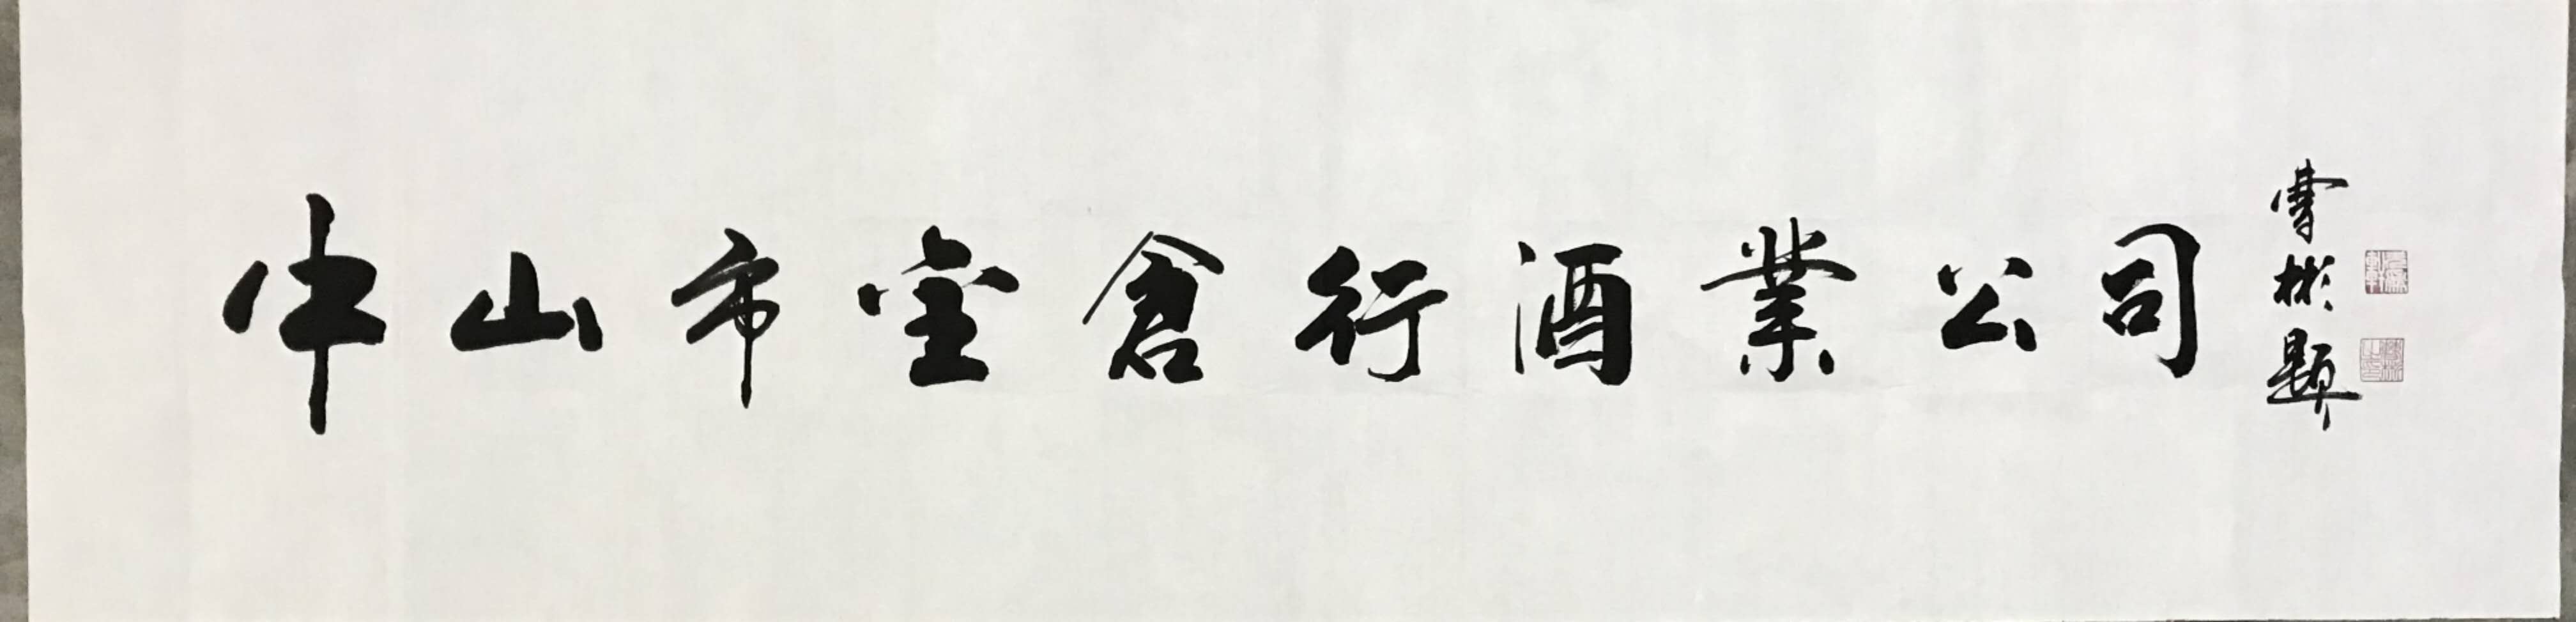 中山市宝倉行酒業公司
彬題